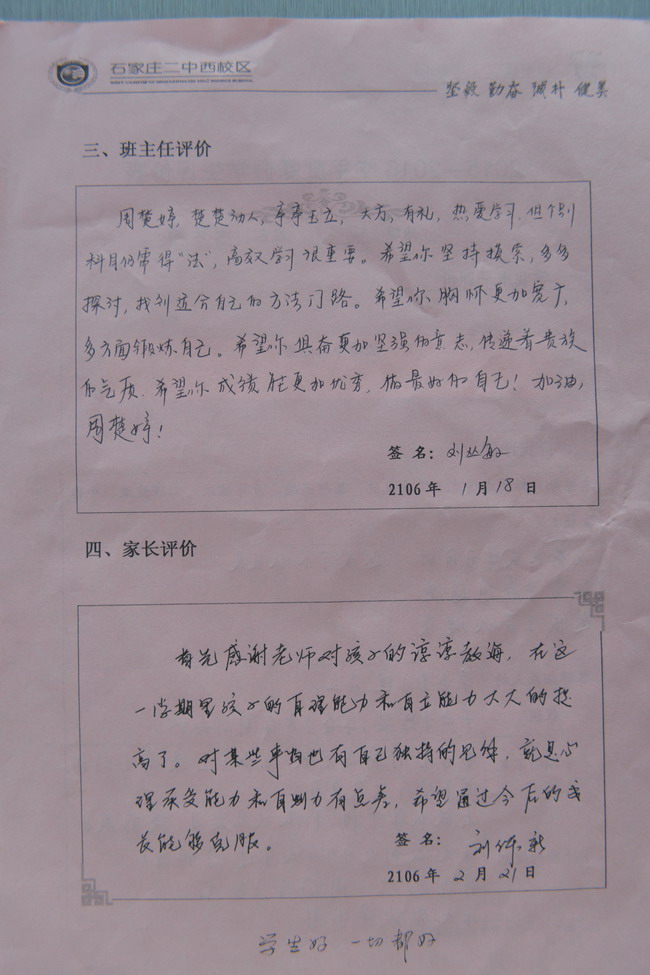 石家庄二中西校区
坚毅 勤奋 诚朴 健美
三、班主任评价
周楚婷,楚楚动人,亭亭玉立,大方,有礼,热爱学习,但个别
科目仍需得“法”,高效学习很重要。希望你坚持探索,多多
探讨,找到适合自己的方法门路。希望你胸怀更加宽广,
多方面锻炼自己。希望你俱奋更加坚强的意志,传递着贵族
的气质,希望你成绩能更加优秀,做最好的自己!加油,
周楚婷!
签名:刘丛敏
2106年 1月18日
四、家长评价
首先感谢老师对孩子的谆谆教海,在这
一学期里孩子的自理能力和自立能力大大的提
高了。对某些事物也有自己独特的见解,就是心
理承受能力和自制力有点差,希望通过今后的成
长能够克服。
签名:
2106年 2月21日
学生好 一切都好